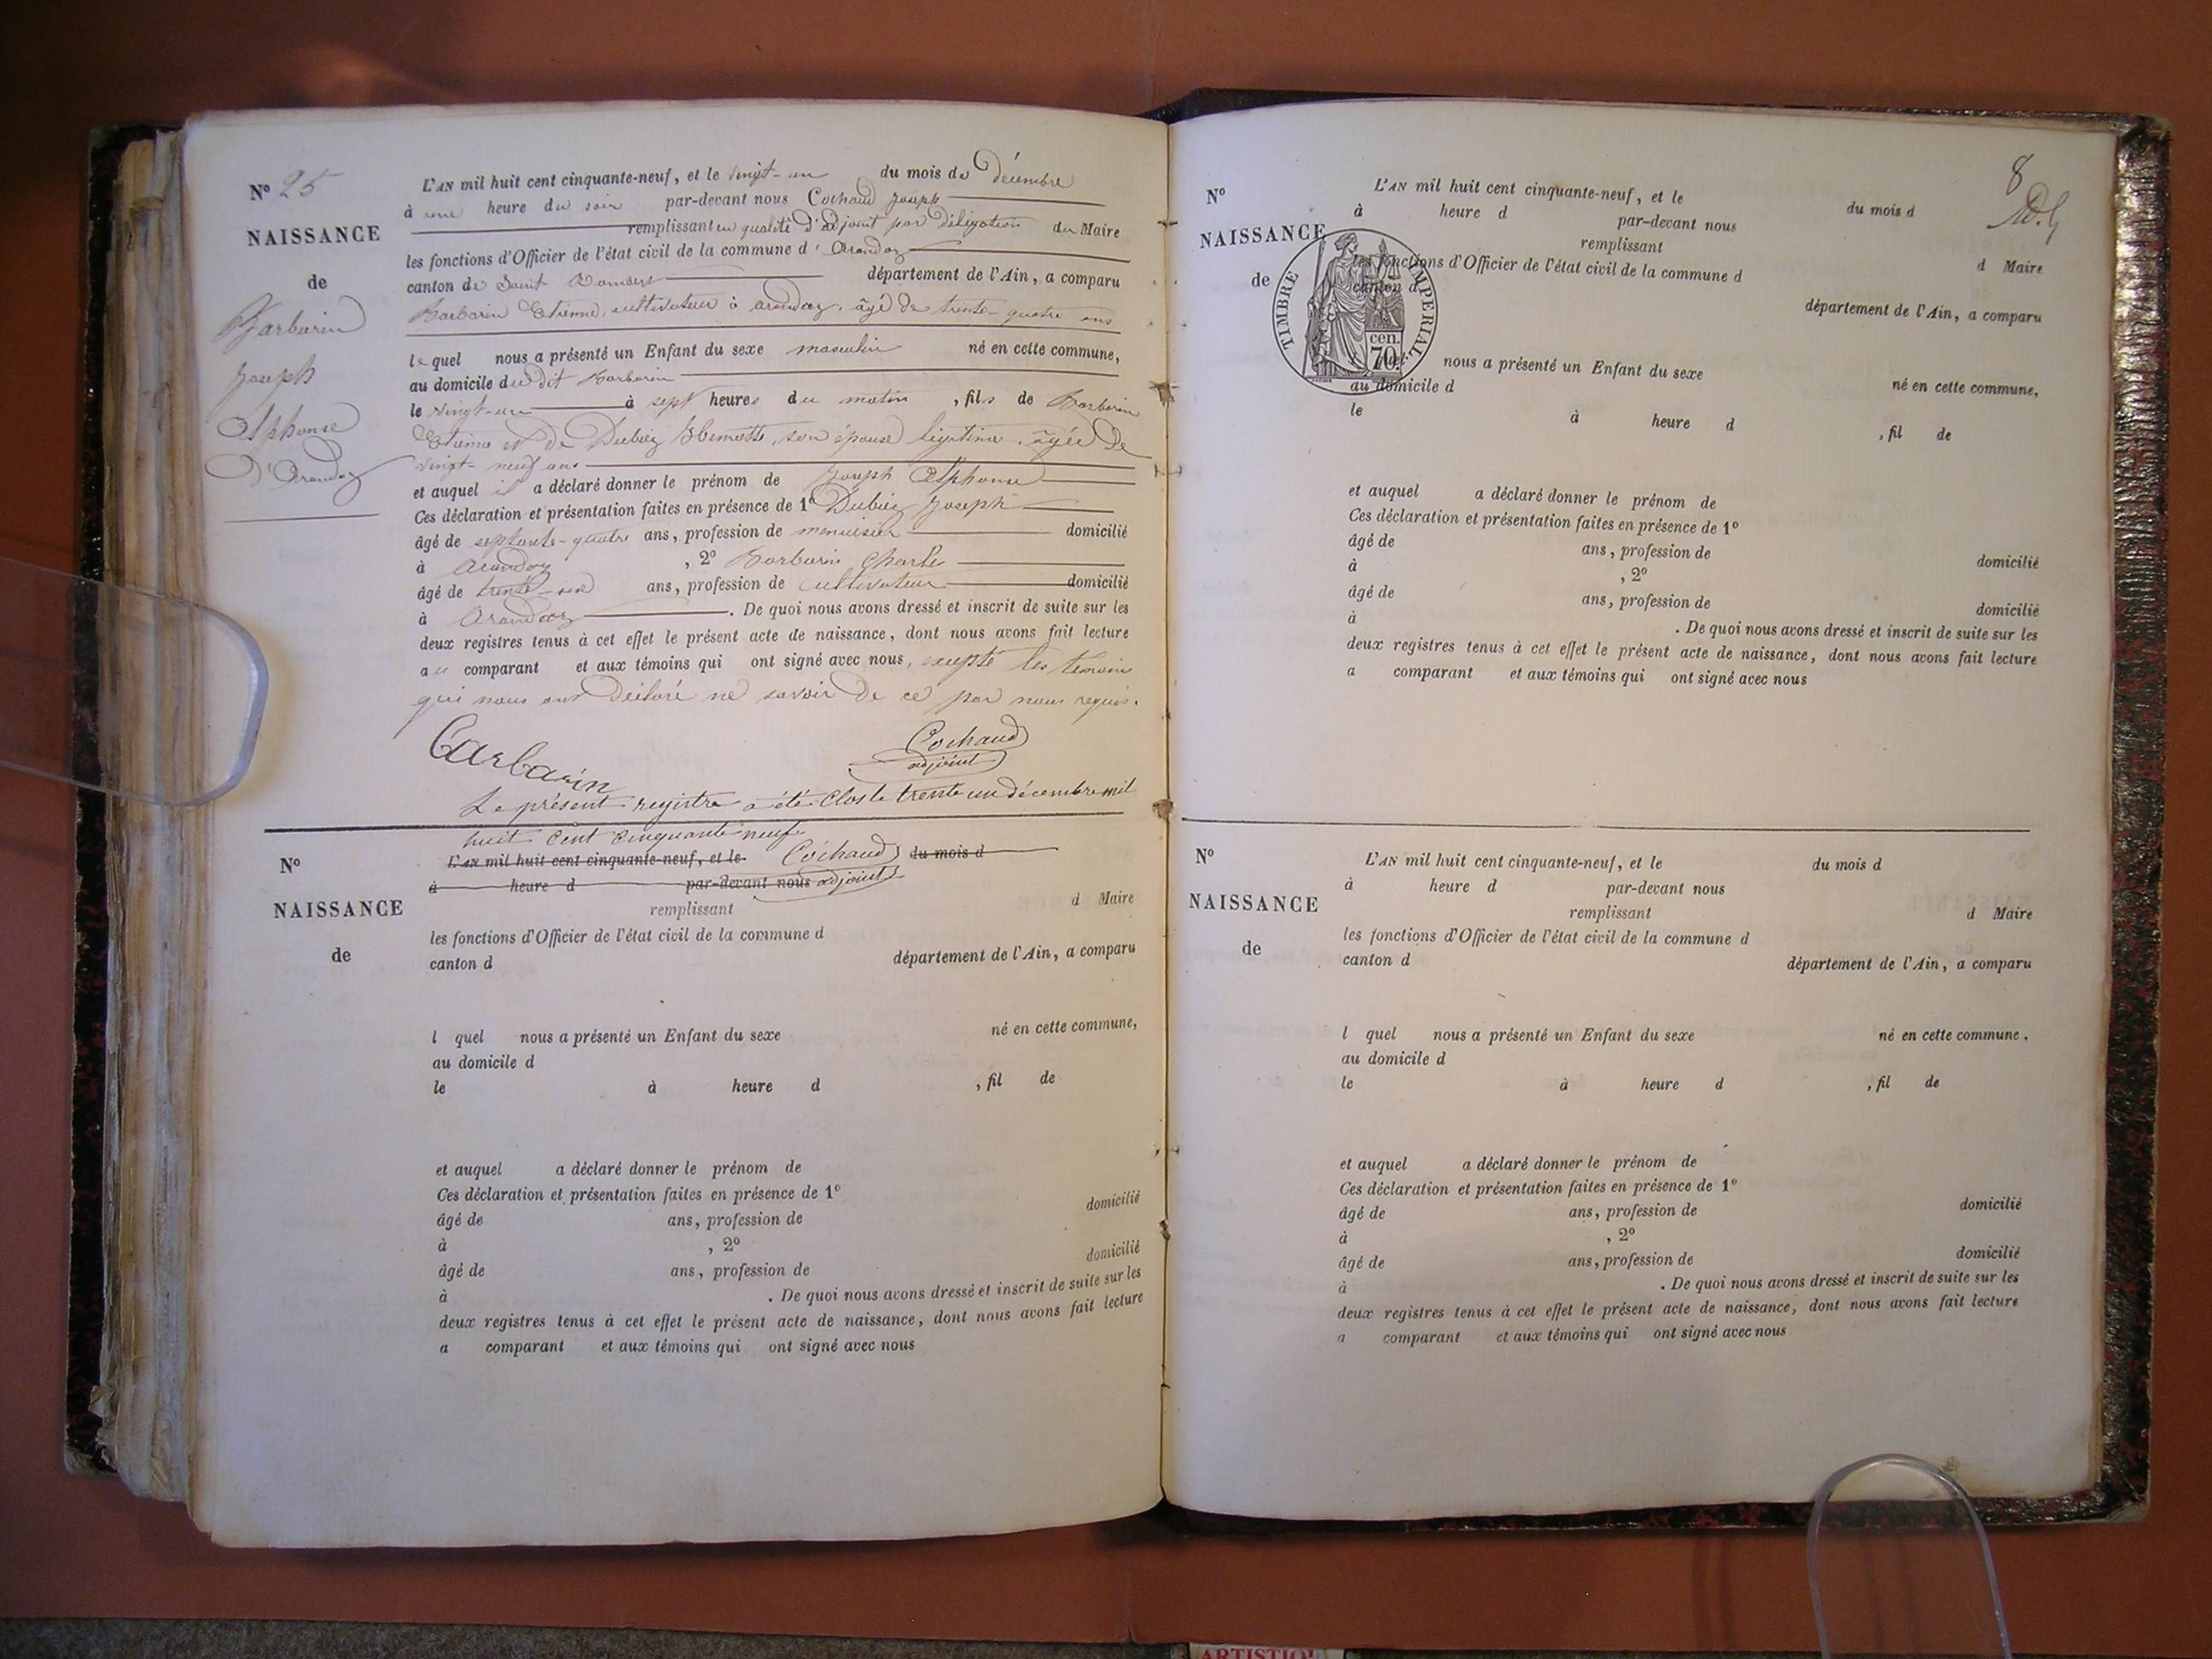 N° 25
NAISSANCE
de
Barbarin
Joseph
Alphonse
D'Arandaz
L'AN mil huit cent cinquante-neuf, et le vingt-un du mois de Décembre
à une heure du soir par-devant nous Cochaud Joseph
remplissant en qualité d'adjoint par Délégation du Maire
les fonctions d'Officier de l'état civil de la commune d'Arandaz
canton de Saint Rambert département de l'Ain, a comparu
Barbarin Etienne, cultivateur à arandaz, âgé de trente-quatre ans
lequel nous a présenté un Enfant du sexe masculin né en cette commune,
au domicile du dit Barbarin
le vingt-un à sept heures du matin, fils de Barbarin
Etienne et de Dubiez son épouse légitime, âgée De
vingt-neuf ans
et auquel il a déclaré donner le prénom de Joseph Alphonse
Ces déclaration et présentation faites en présence de 1° Dubiez Joseph
âgé de septante-quatre ans, profession de menuisier domicilié
à Arandaz, 2° Barbarin Charle
âgé de trente- ans, profession de cultivateur domicilié
à Arandaz. De quoi nous avons dressé et inscrit de suite sur les
deux registres tenus à cet effet le présent acte de naissance, dont nous avons fait lecture
au comparant et aux témoins qui ont signé avec nous, excepté les témoins
qui nous ont Déclaré ne savoir De ce par nous requis.
Barbarin
Cochaud
adjoint
Le présent registre a été clos le trente un décembre mil
huit cent cinquante neuf
N°
NAISSANCE
de
L'AN mil huit cent cinquante-neuf, et le Cochaud du mois d
à heure d par-devant nous adjoint
remplissant d Maire
les fonctions d'Officier de l'état civil de la commune d
canton d département de l'Ain, a comparu
l quel nous a présenté un Enfant du sexe né en cette commune,
au domicile d
le à heure d , fil de
et auquel a déclaré donner le prénom de
Ces déclaration et présentation faites en présence de 1°
âgé de ans, profession de domicilié
à , 2°
âgé de ans, profession de domicilié
à . De quoi nous avons dressé et inscrit de suite sur les
deux registres tenus à cet effet le présent acte de naissance, dont nous avons fait lecture
a comparant et aux témoins qui ont signé avec nous
8
N°
NAISSANCE
de
TIMBRE IMPERIAL
cen.
70
L'AN mil huit cent cinquante-neuf, et le du mois d
à heure d par-devant nous
remplissant d Maire
les fonctions d'Officier de l'état civil de la commune d
canton d département de l'Ain, a comparu
l quel nous a présenté un Enfant du sexe né en cette commune,
au domicile d
le à heure d , fil de
et auquel a déclaré donner le prénom de
Ces déclaration et présentation faites en présence de 1°
âgé de ans, profession de domicilié
à , 2°
âgé de ans, profession de domicilié
à . De quoi nous avons dressé et inscrit de suite sur les
deux registres tenus à cet effet le présent acte de naissance, dont nous avons fait lecture
a comparant et aux témoins qui ont signé avec nous
N°
NAISSANCE
de
L'AN mil huit cent cinquante-neuf, et le du mois d
à heure d par-devant nous
remplissant d Maire
les fonctions d'Officier de l'état civil de la commune d
canton d département de l'Ain, a comparu
l quel nous a présenté un Enfant du sexe né en cette commune.
au domicile d
le à heure d , fil de
et auquel a déclaré donner le prénom de
Ces déclaration et présentation faites en présence de 1°
âgé de ans, profession de domicilié
à , 2°
âgé de ans, profession de domicilié
à . De quoi nous avons dressé et inscrit de suite sur les
deux registres tenus à cet effet le présent acte de naissance, dont nous avons fait lecture
a comparant et aux témoins qui ont signé avec nous